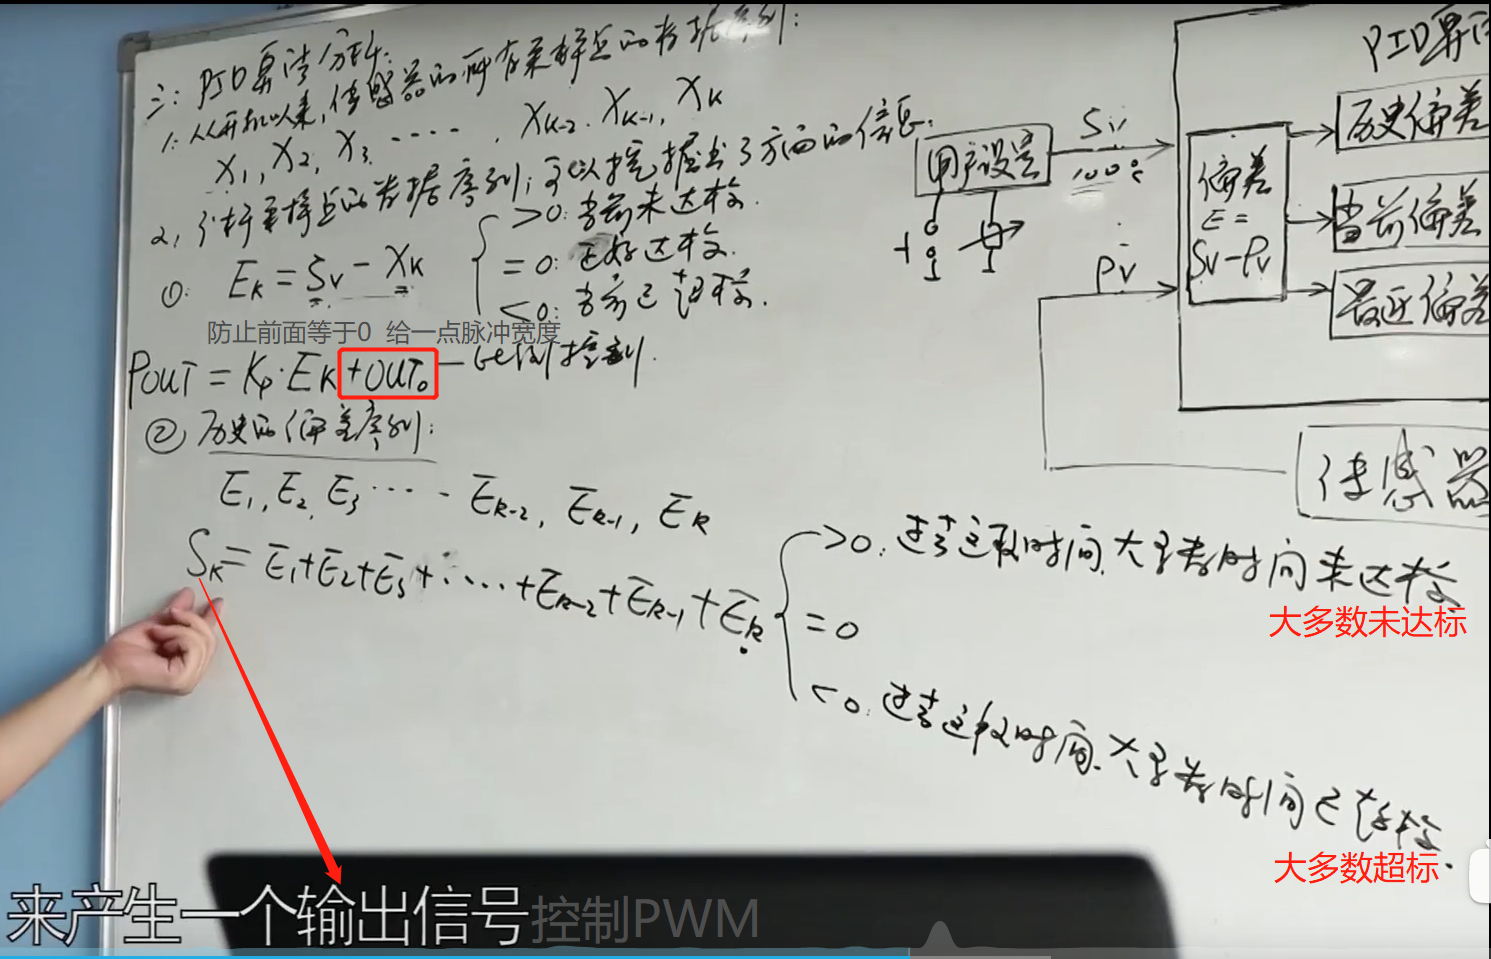 三: PID算法分析:
1: 从开机以来,传感器的所有采样点的数据序列:
X1, X2, X3, ····, XK-2. XK-1, XK
2, 分析采样点的数据序列;可以挖掘出3方面的信息:
①: EK = SV - XK
>0: 当前未达标.
=0: 正好达标.
<0: 当前已超标.
防止前面等于0 给一点脉冲宽度
POUT = KP·EK +OUT0 — 比例控制.
② 历史的偏差序列:
E1, E2, E3 ···· EK-2, EK-1, EK
SK= E1+E2+E3+·····+EK-2+EK-1+EK
>0: 过去这段时间,大多数时间未达标
大多数未达标
=0
<0: 过去这段时间,大多数时间已超标.
大多数超标
用户设置
SV
100℃
PV
PID算法
偏差
E=
SV-PV
历史偏差
当前偏差
最近偏差
传感器
来产生一个输出信号 控制PWM